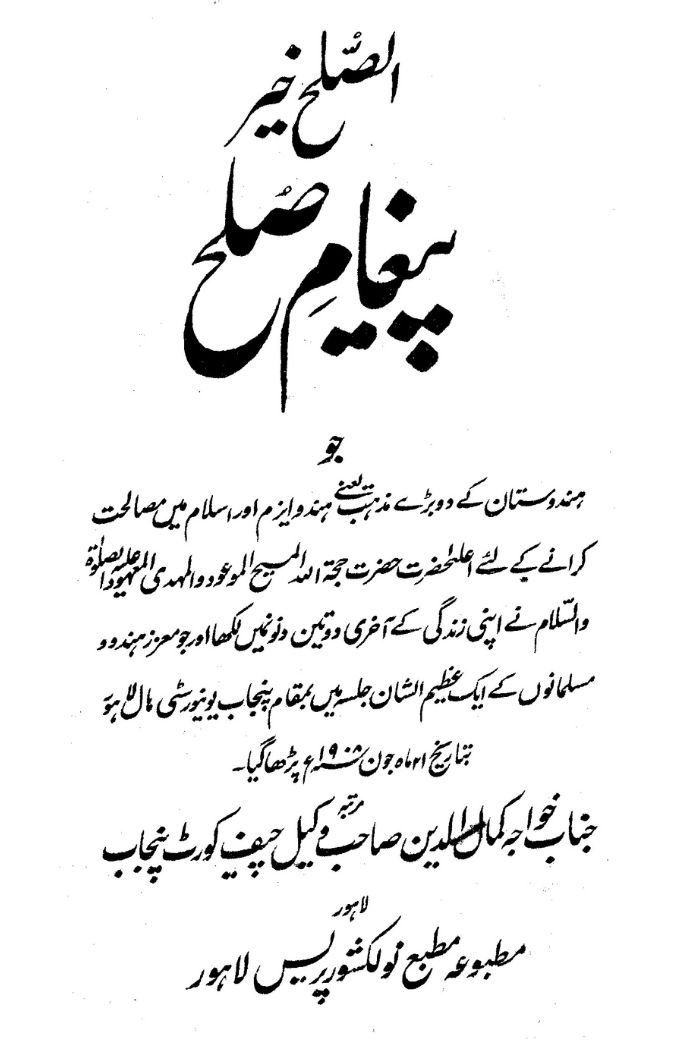 الصُّلح خیر
پیغامِ صُلح
جو
ہندوستان کے دو بڑے مذہب یعنے ہندو ایزم اور اسلام میں مصالحت
کرانے کے لئے اعلحضرت حضرت حجۃ اللہ المسیح الموعود والمہدی المعہود علیہ الصلوٰۃ
والسّلام نے اپنی زندگی کے آخری دو تین دنونمیں لکھا اور جو معزز ہندوو
مسلمانوں کے ایک عظیم الشان جلسہ میں بمقام پنجاب یونیورسٹی ہال لاہور
بتاریخ ۲۱ ماہ جون ۱۹۰۸ء پڑھا گیا۔
مرتبہ
جناب خواجہ کمال الدین صاحب وکیل چیف کورٹ پنجاب
لاہور
مطبوعہ مطبع نولکشور پریس لاہور